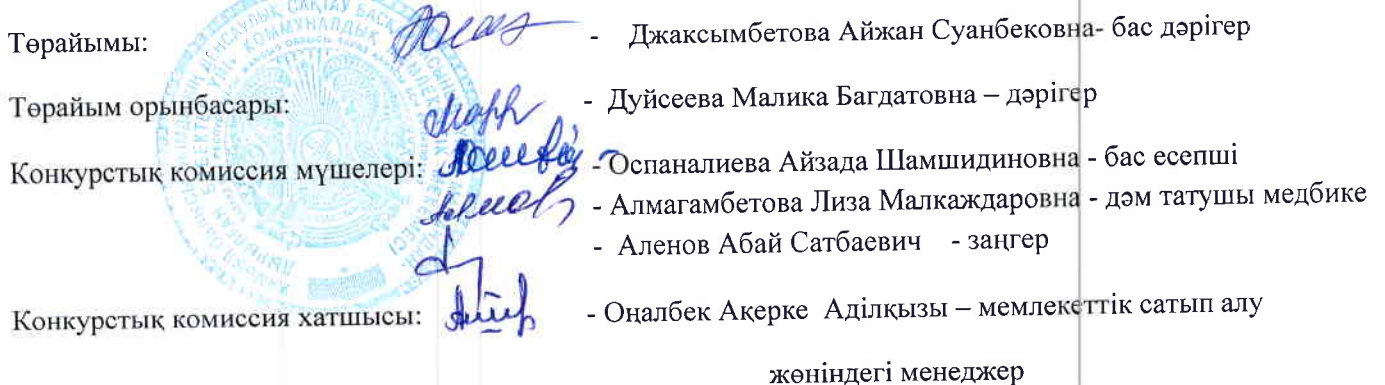 Төрайымы: - Джаксымбетова Айжан Суанбековна- бас дәрігер
Төрайым орынбасары: - Дуйсеева Малика Багдатовна – дәрігер
Конкурстық комиссия мүшелері: - Оспаналиева Айзада Шамшидиновна - бас есепші
- Алмагамбетова Лиза Малкаждаровна - дәм татушы медбике
- Аленов Абай Сатбаевич - заңгер
Конкурстық комиссия хатшысы: - Оңалбек Ақерке Аділқызы – мемлекеттік сатып алу
жөніндегі менеджер